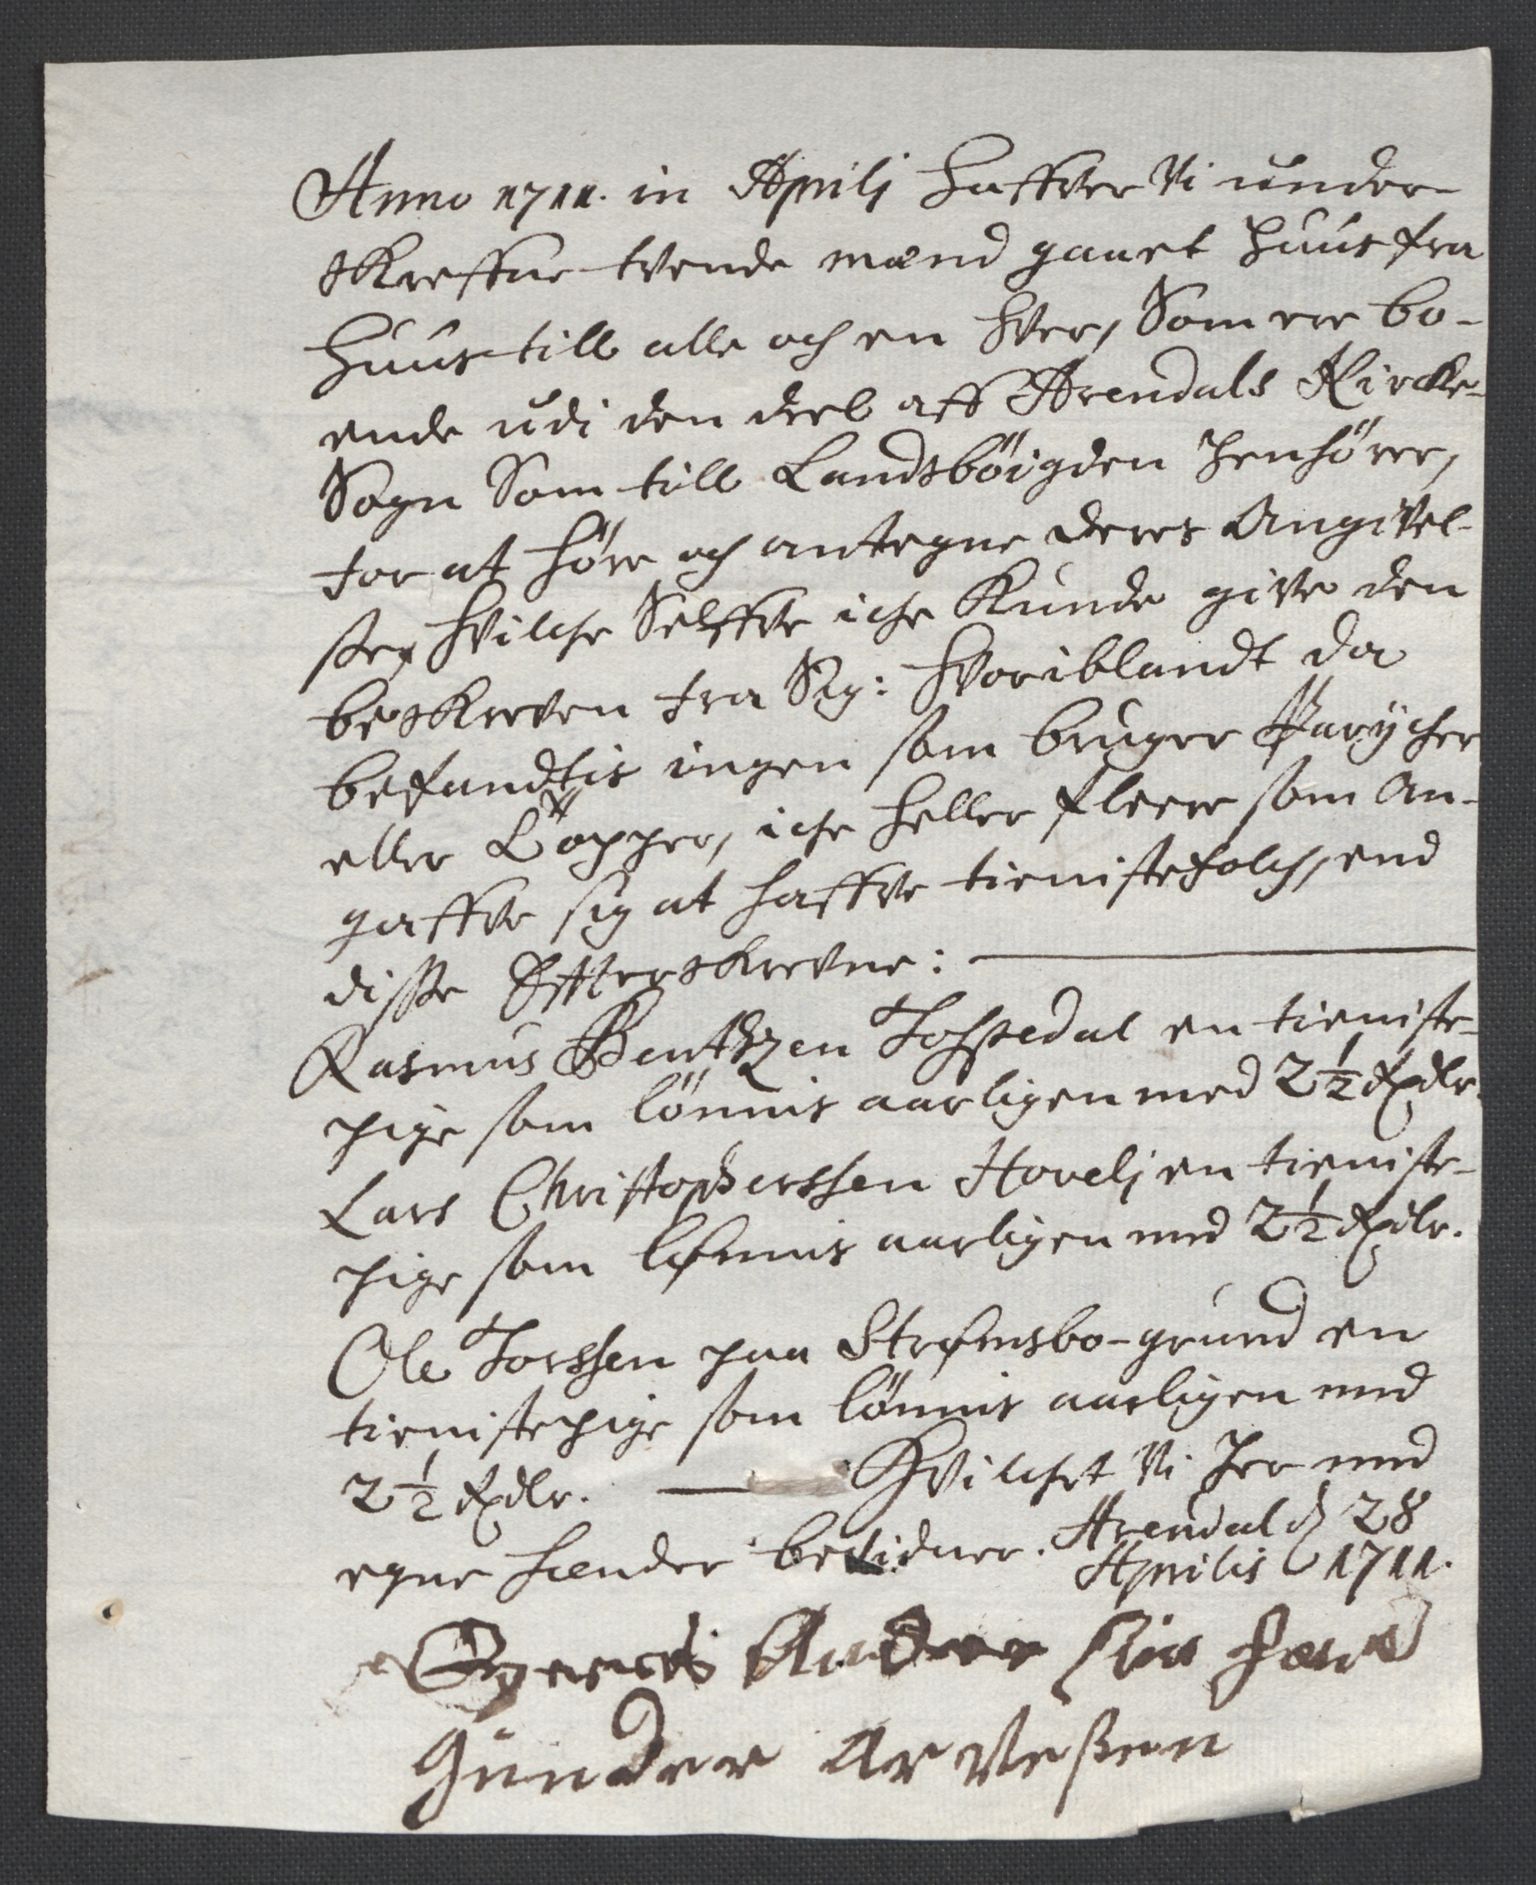 Anno 1711. in Aprilj Haffver Vi under-
skreffne tvende mænd gaaet Huus fra
Huus till alle och en hver, Som ere bo-
ende udi den deel aff Arendals Kircke-
Sogn Som till Landsbøigden henhører,
for at høre och antegne deres Angivel-
ser, hvilche Selffve iche Kunde give den
beskreven fra Sig: hvoriblandt da
befandtis ingen som bruger Parÿcher
eller Topper, iche heller fleere som An-
gaffve sig at haffve tienistefolch, end
disse Effterskrevne:
Rasmus Bentszen Tossedal en tieniste-
pige som lønnis aarligen med 2½ Rdlr.
Lars Christopherssen Hovelj en tieniste-
pige som lønnis aarligen med 2½ Rdlr.
Ole Torssen paa Strømsbo-grund en
tienistepige som lønnis aarligen med
2½ Rdlr. Hvilchet Vi her med
egne hænder betidner. Arendal d 28
Aprilis 1711.
Gunder Arveßen